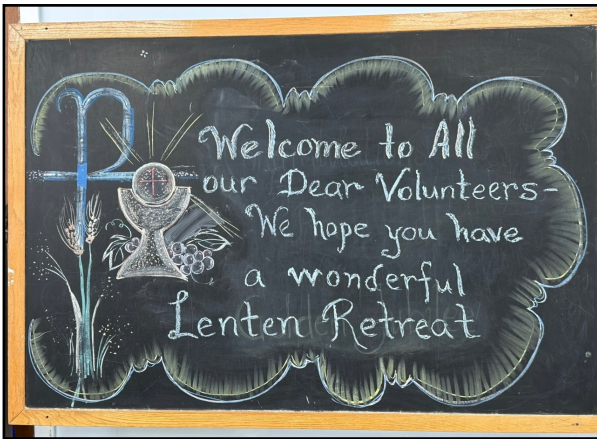 Welcome to All
our Dear Volunteers-
We hope you have
a wonderful
Lenten Retreat